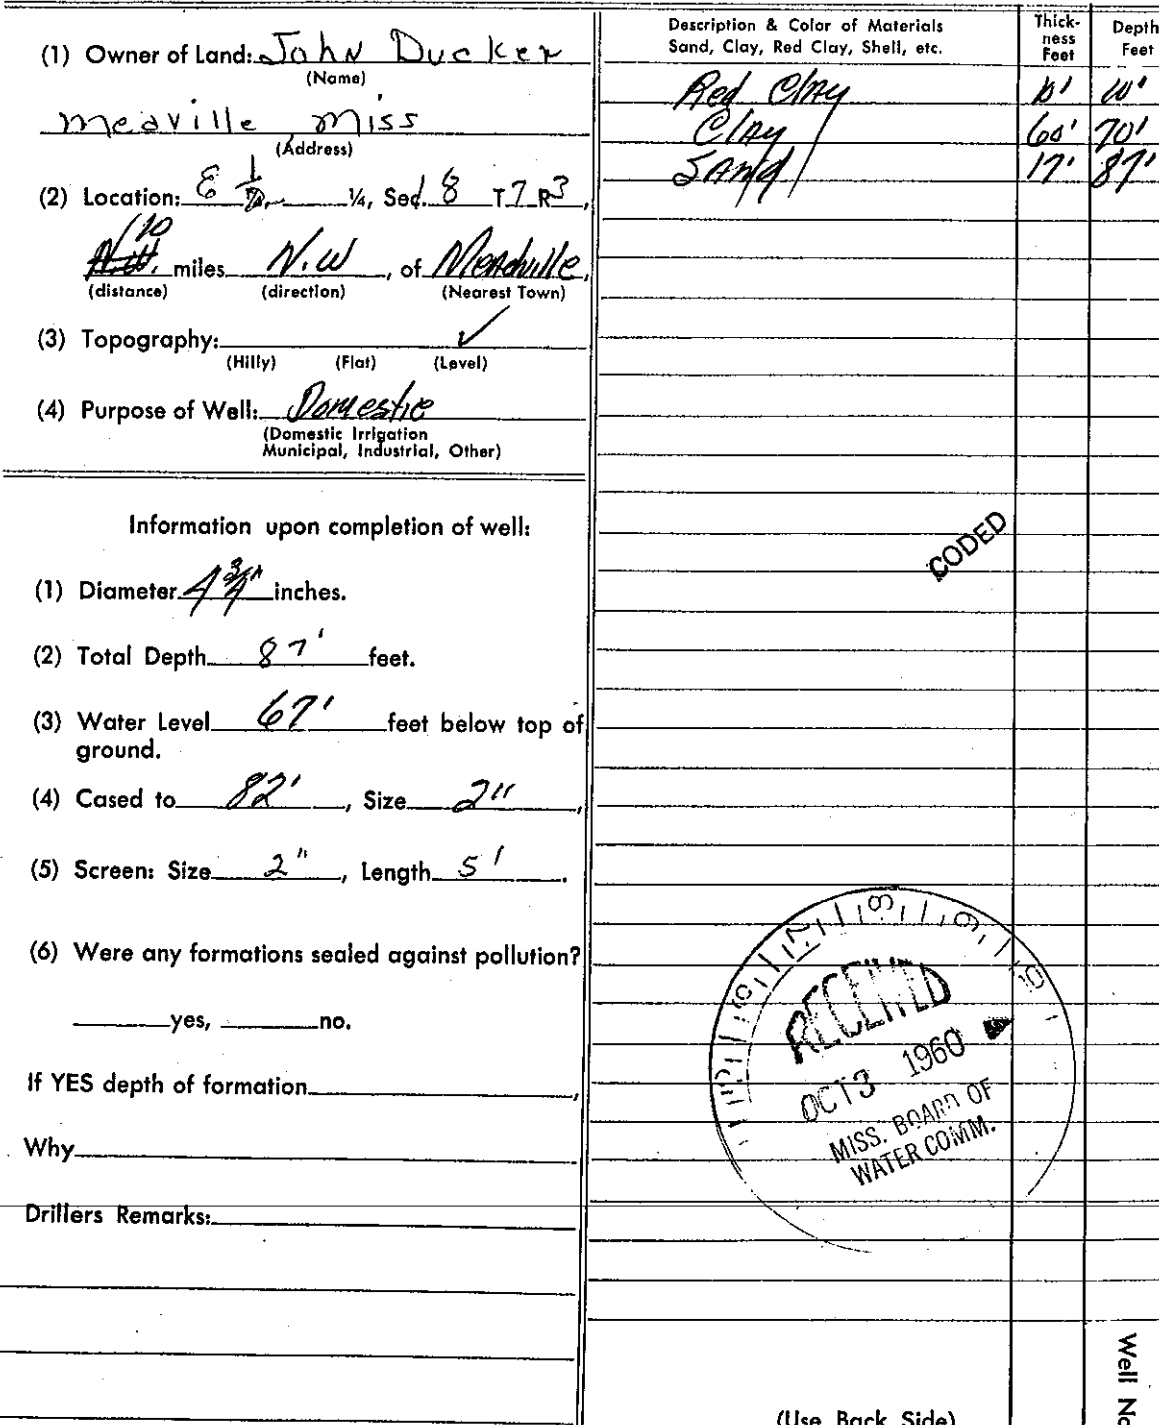 (1) Owner of Land: John Ducker
(Name)
meaville miss
(Address)
(2) Location: E ½ ¼, Sec. 8 T 7 R 3,
10 miles N.W, of Meadville,
(distance) (direction) (Nearest Town)
(3) Topography: ✓
(Hilly) (Flat) (Level)
(4) Purpose of Well: Domestic
(Domestic Irrigation
Municipal, Industrial, Other)
Information upon completion of well:
(1) Diameter 4 3/4" inches.
(2) Total Depth 87' feet.
(3) Water Level 67' feet below top of
ground.
(4) Cased to 82', Size 2",
(5) Screen: Size 2", Length 5'.
(6) Were any formations sealed against pollution?
yes, no.
If YES depth of formation,
Why
Drillers Remarks:
Description & Color of Materials
Sand, Clay, Red Clay, Shell, etc.
Thick-
ness
Feet
Depth
Feet
Red Clay 10' 10'
Clay 60' 70'
SAND 17' 87'
CODED
RECEIVED
OCT 3 1960
MISS. BOARD OF
WATER COMM.
Well No
(Use Back Side)